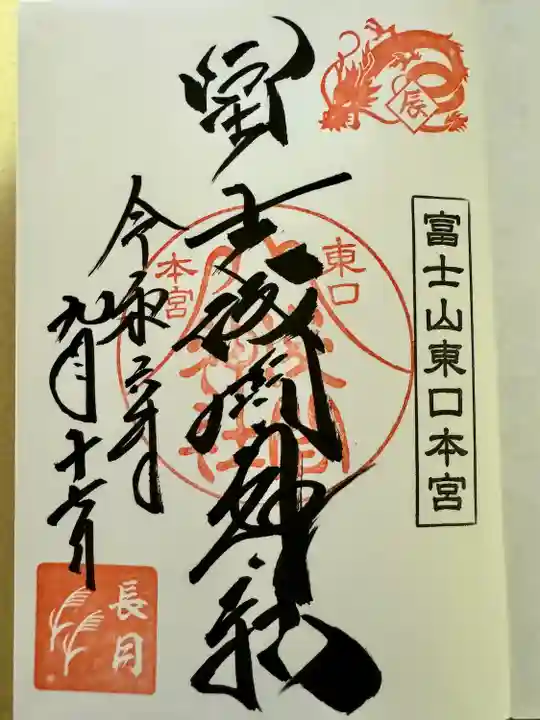 辰
富士山東口本宮
冨士浅間神社
東口
本宮
浅間
神社
令和六年
九月十六日
長月